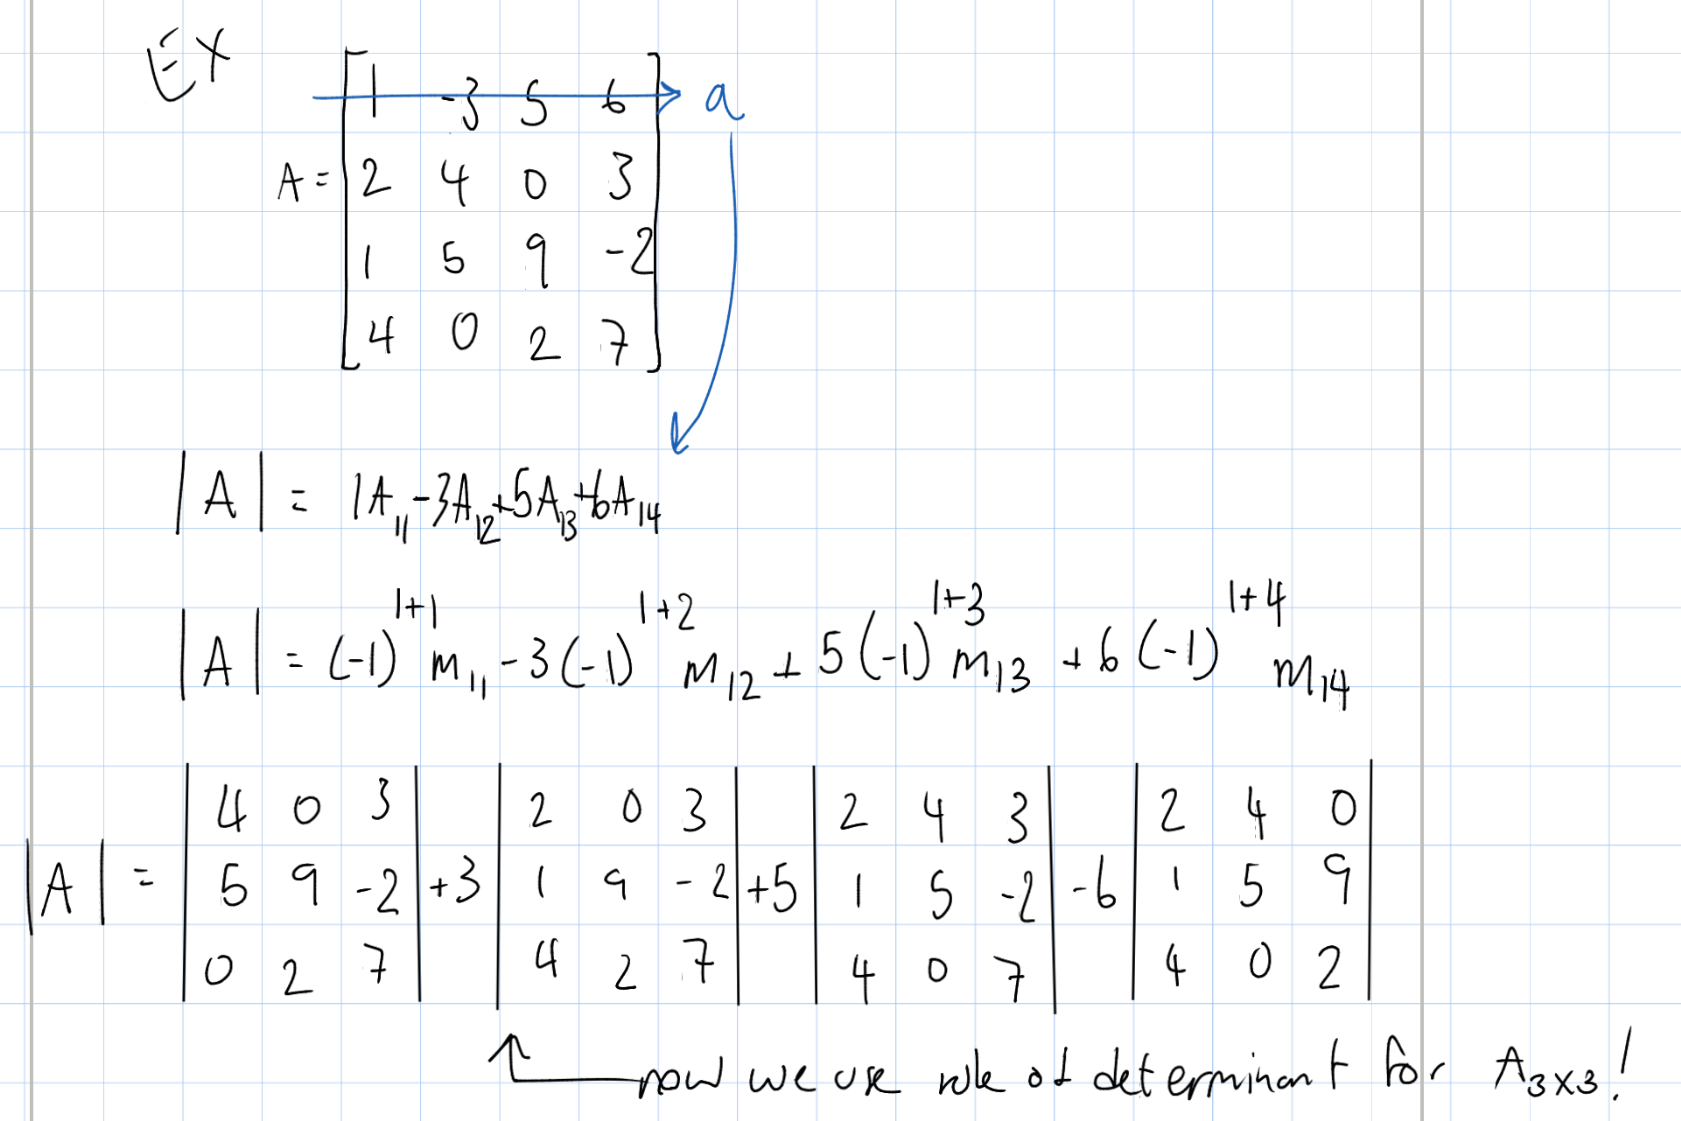 EX
A = [1 -3 5 6] → a
[2 4 0 3]
[1 5 9 -2]
[4 0 2 7]
|A| = 1A₁₁ -3A₁₂ +5A₁₃ +6A₁₄
|A| = (-1)¹⁺¹ m₁₁ -3(-1)¹⁺² m₁₂ + 5(-1)¹⁺³ m₁₃ + 6(-1)¹⁺⁴ m₁₄
|4 0 3| |2 0 3| |2 4 3| |2 4 0|
|A| = |5 9 -2| +3 |1 9 -2| +5 |1 5 -2| -6 |1 5 9|
|0 2 7| |4 2 7| |4 0 7| |4 0 2|
now we use rule of determinant for A₃ₓ₃!